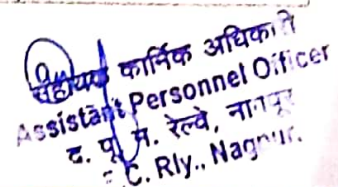 सहायक कार्मिक अधिकारी
Assistant Personnel Officer
द. पू. म. रेल्वे, नागपूर
C. Rly., Nagpur.